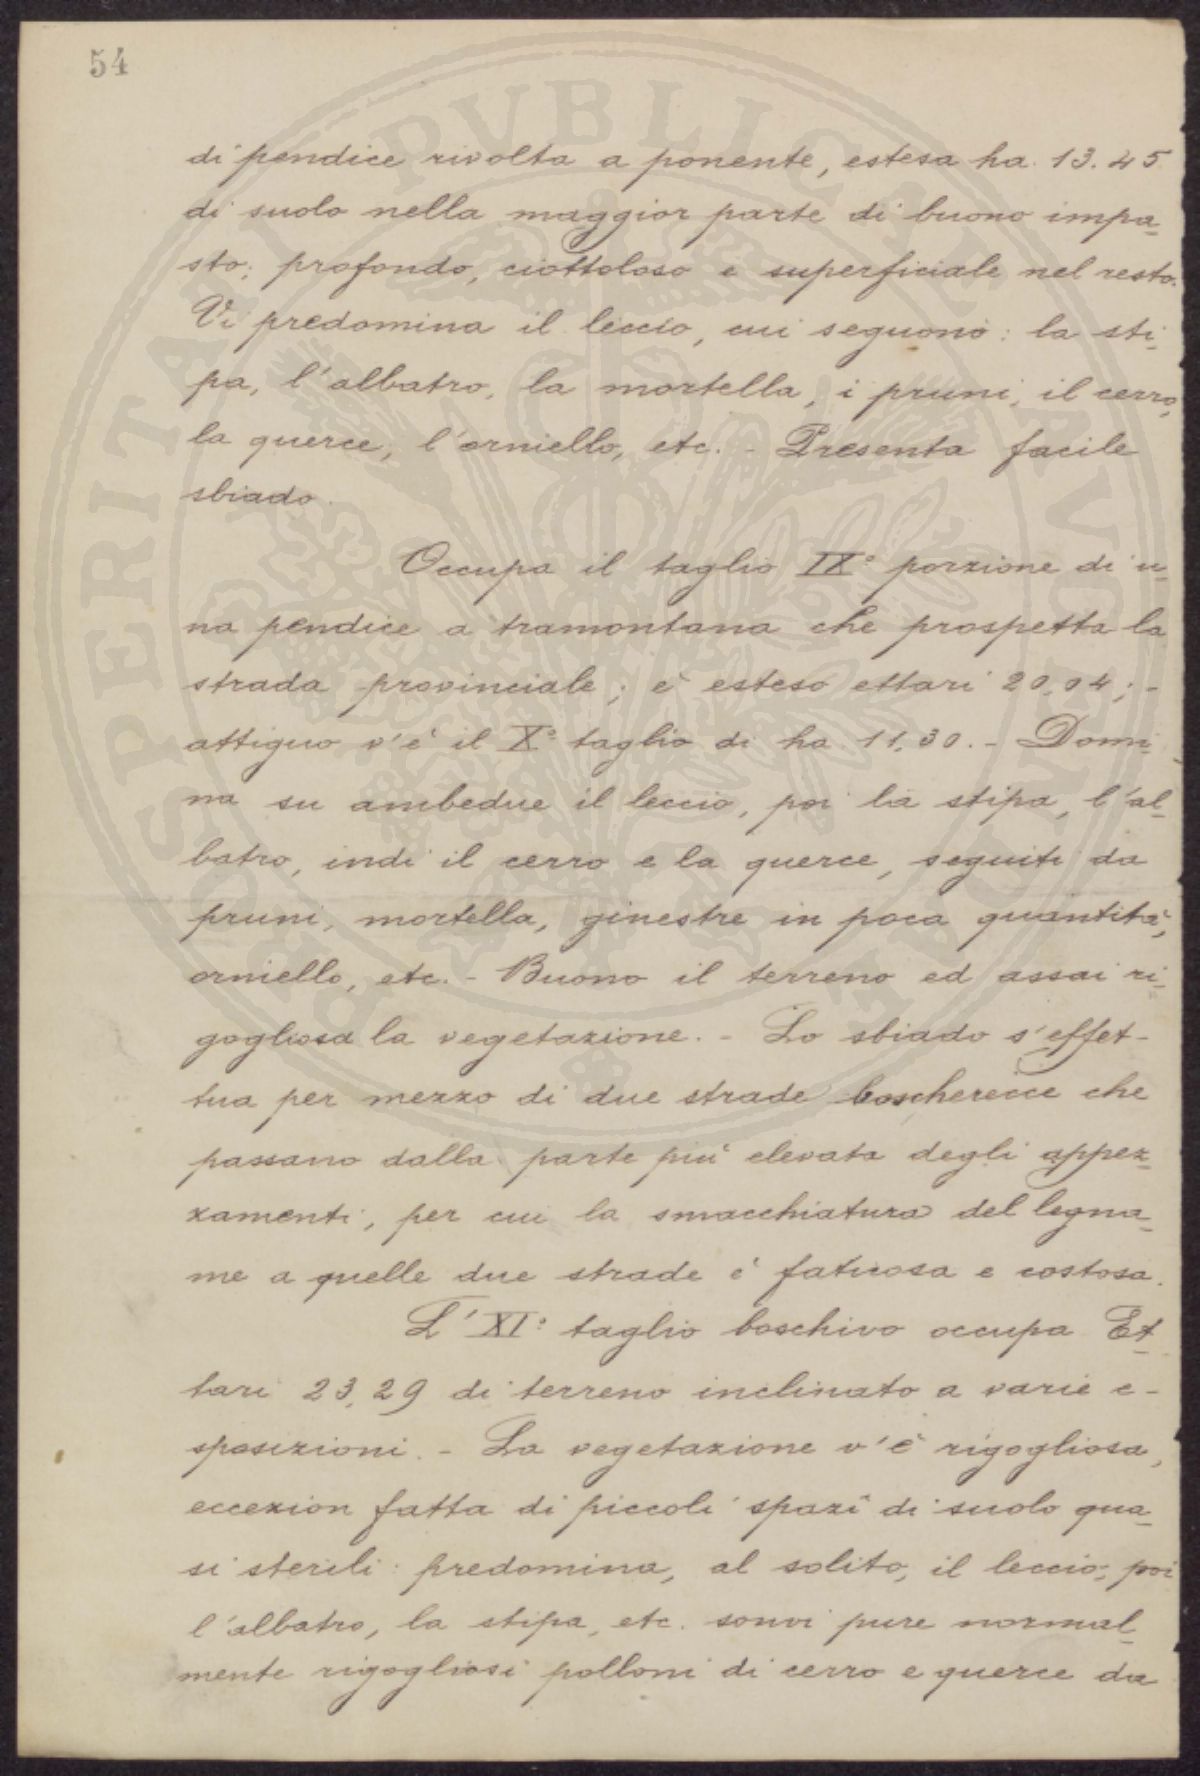 54
di pendice rivolta a ponente, estesa ha. 13.45
di suolo nella maggior parte di buono impa-
sto; profondo, ciottoloso e superficiale nel resto.
Vi predomina il leccio, cui seguono: la sti-
pa, l'albatro, la mortella, i pruni, il cerro,
la querce, l'orniello, etc. - Presenta facile
sbiado.
Occupa il taglio IX° porzione di u-
na pendice a tramontana che prospetta la
strada provinciale; è esteso ettari 20,04; -
attiguo v'è il X° taglio di ha. 11,30. - Domi-
na su ambedue il leccio, poi la stipa, l'al-
batro, indi il cerro e la querce, seguiti da
pruni, mortella, ginestre in poca quantità,
orniello, etc. - Buono il terreno ed assai ri-
gogliosa la vegetazione. - Lo sbiado s'effet-
tua per mezzo di due strade boscherecce che
passano dalla parte più elevata degli appez-
zamenti, per cui la smacchiatura del legna-
me a quelle due strade è faticosa e costosa.
L'XI° taglio boschivo occupa Et-
tari 23,29 di terreno inclinato a varie e-
sposizioni. - La vegetazione v'è rigogliosa,
eccezion fatta di piccoli spazi di suolo qua-
si sterili: predomina, al solito, il leccio; poi
l'albatro, la stipa, etc. sonvi pure normal-
mente rigogliosi polloni di cerro e querce da
PROSPERITATI PVBLICAE AVGENDAE